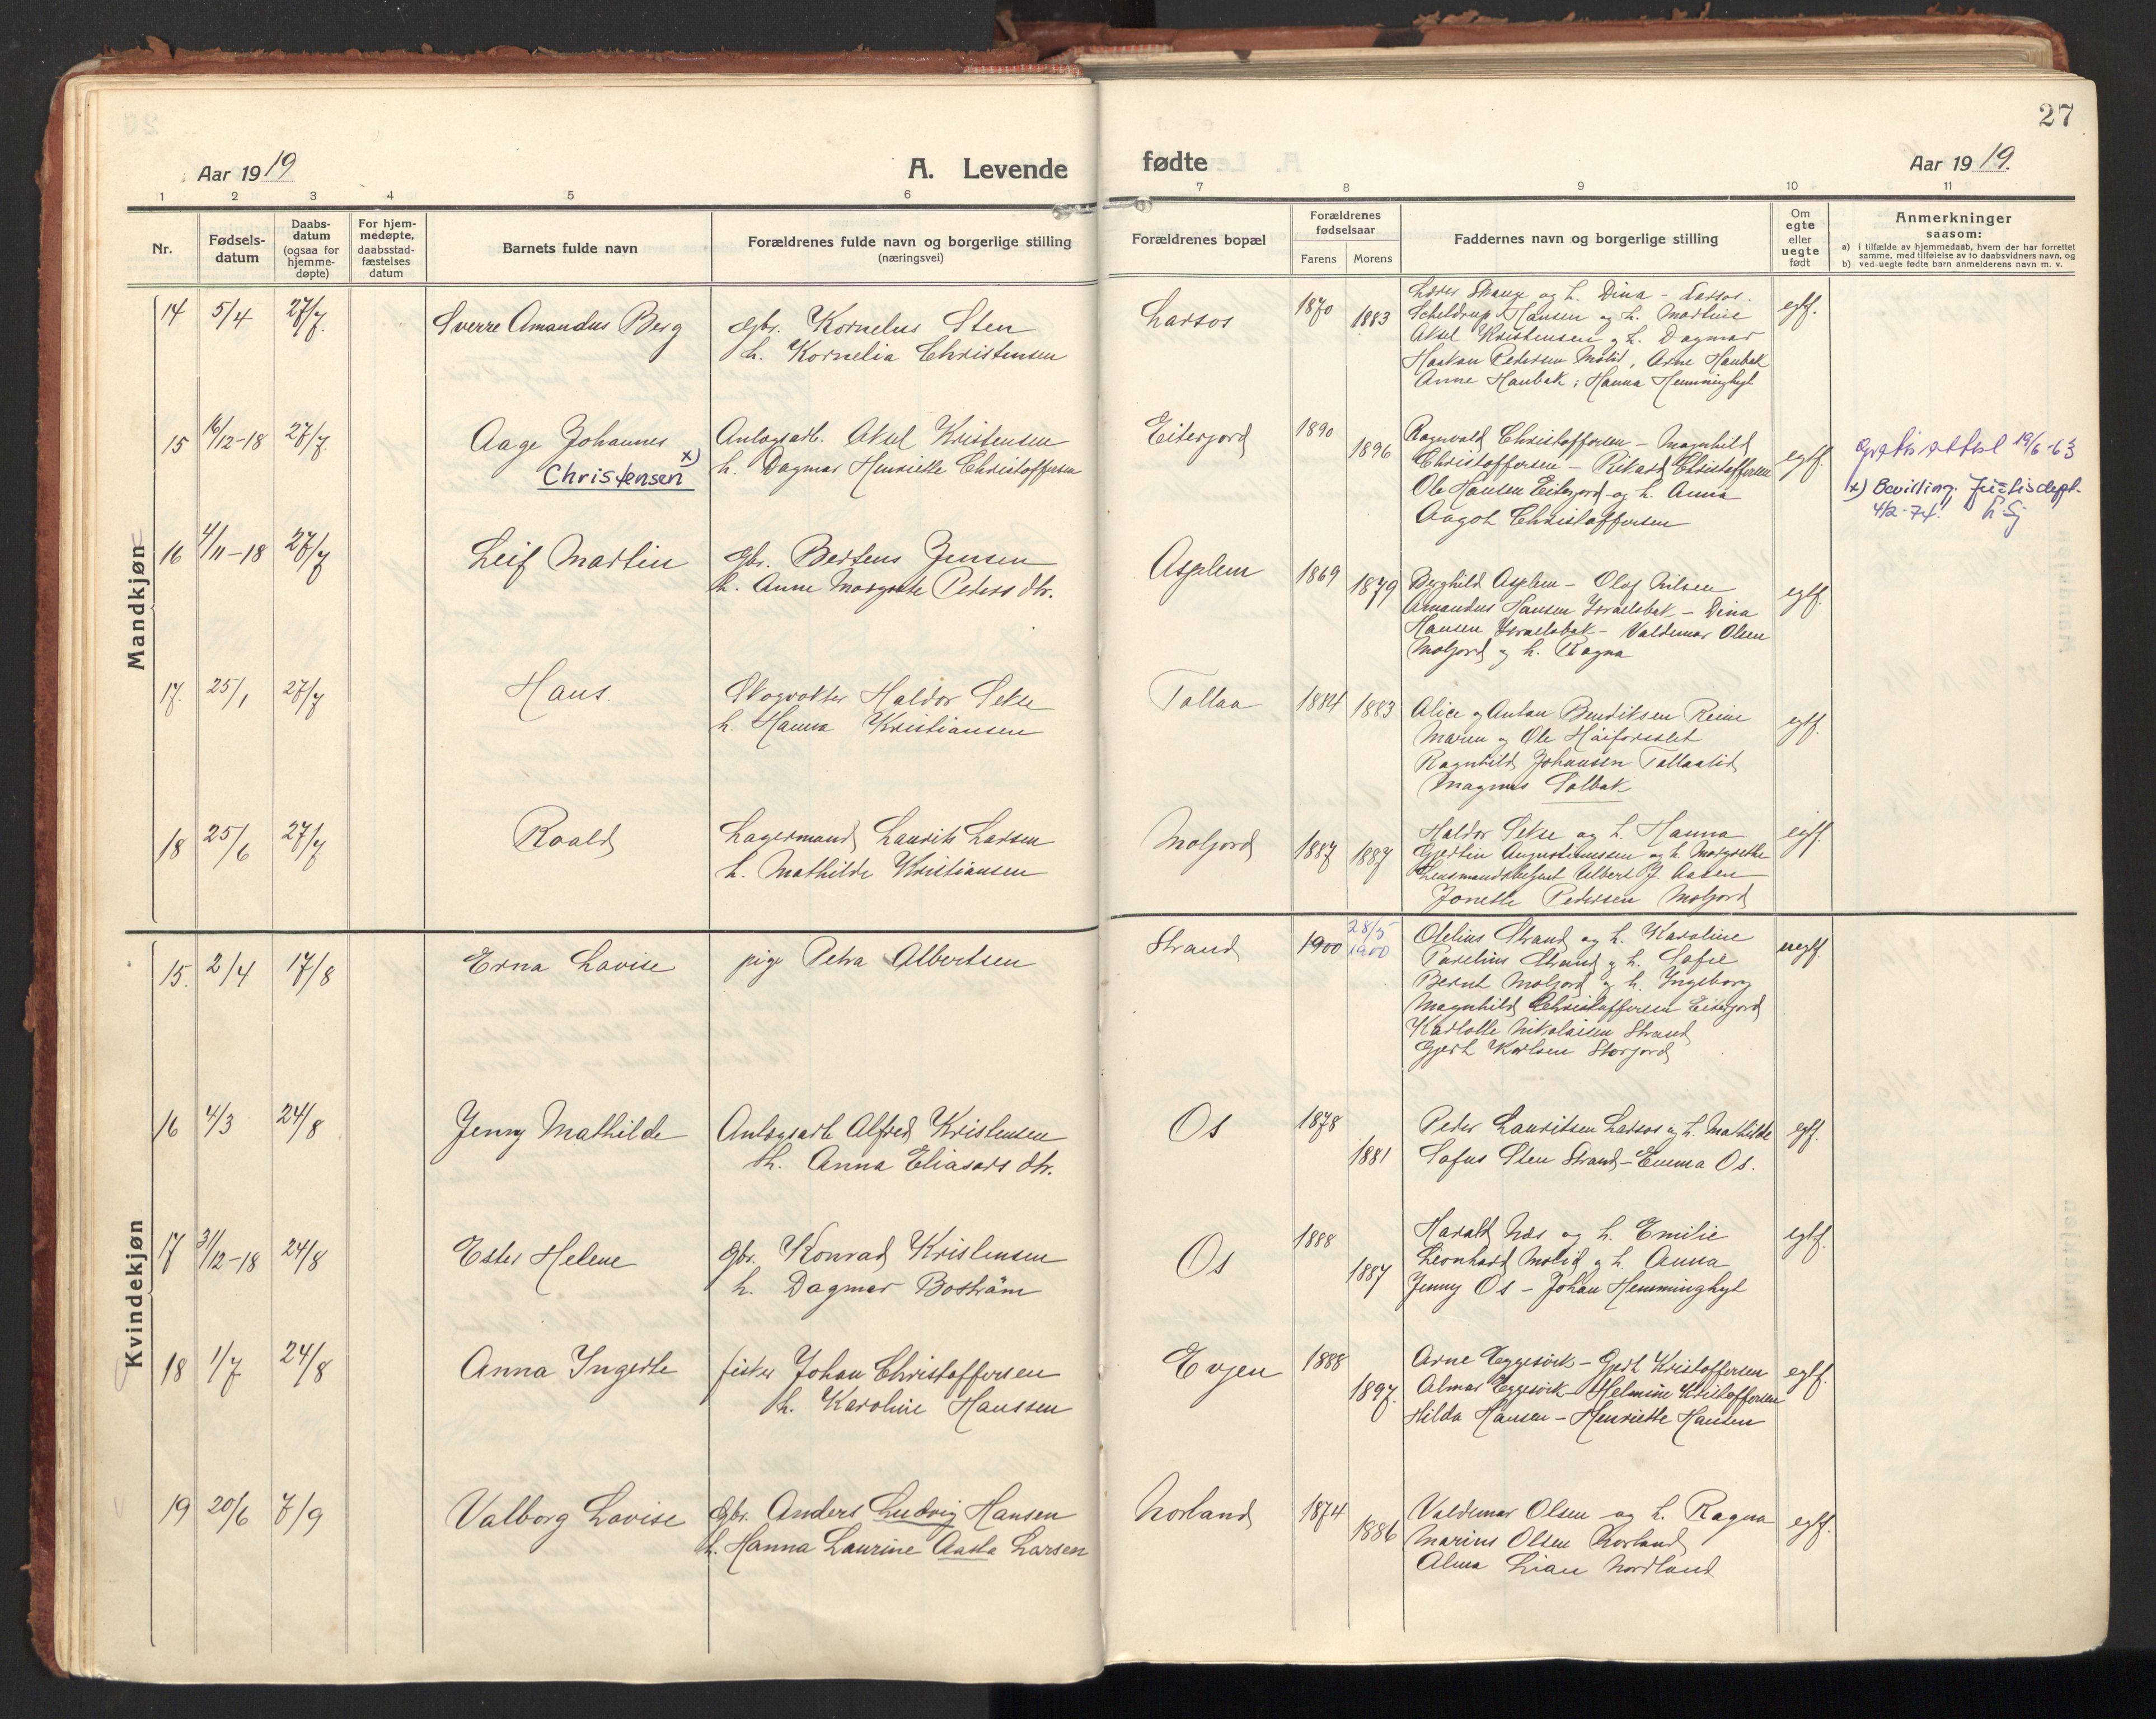 27
Aar 1919
A. Levende fødte
Aar 1919.
1 2 3 4 5 6 7 8 9 10 11
Nr.
Fødsels-
datum
Daabs-
datum
(ogsaa for
hjemme-
døpte)
For hjem-
medøpte,
daabsstad-
fæstelses
datum
Barnets fulde navn
Forældrenes fulde navn og borgerlige stilling
(næringsvei)
Forældrenes bopæl
Forældrenes
fødselsaar
Farens Morens
Faddernes navn og borgerlige stilling
Om
egte
eller
uegte
født
Anmerkninger
saasom:
a) i tilfælde av hjemmedaab, hvem der har forrettet
samme, med tilføielse av to daabsvidners navn, og
b) ved uegte fødte barn anmelderens navn m. v.
Mandkjøn
14 5/4 27/7. Sverre Amandus Berg
gbr. Kornelus Sten
h. Kornelia Christensen
Larsos 1870 1883
Lærer Skauge og h. Dina – Larsos.
Scheldrup Hansen og h. Martine
Aksel Kristensen og h. Dagmar
Haakon Pedersen Molid, Arne Haubak
Anne Haubak; Hanna Hemminghyt
egtf.
15 16/12-18 27/7. Aage Johannes x)
Christensen
Anlegsarb. Aksel Kristensen
h. Dagmar Henriette Christoffersen
Eiterjord 1890 1896
Ragnvald Christoffersen – Magnhild
Christoffersen – Rikard Christoffersen
Ole Hansen Eiterjord og h. Anna
Aagot Christoffersen
egtf.
Gratis attest 19/6-63
x) Bevilling. Justisdept.
4/2-74.
16 4/11-18 27/7 Leif Martin
gbr. Bertens Jensen
h. Anne Margrete Peders dtr.
Asplem 1869 1879
Berghild Asplem – Olaf Nilsen
Amandus Hansen Israelsbak – Dina
Hansen Israelsbak – Valdemar Olsen
Moljord og h. Ragna
egtf.
17. 25/1 27/7 Hans.
Skogvokter Haldor Sekse
h. Hanna Kristiansen
Tollaa 1884 1883
Alice og Anton Bendiksen Reine
Maren og Ole Høiforsslet
Ragnhild Johansen Tollaalid
Magnus Solbak
egtf.
18 25/6 27/7 Roald
Lagermand Laurits Larsen
h. Mathilde Kristiansen
Moljord 1887 1887
Haldor Sekse og h. Hanna
Gjertin Augustinussen og h. Margrethe
Lensmandsbetjent Albert J. Aasen
Jonette Pedersen Moljord
egtf.
Kvindekjøn
15. 2/4 17/8 Erna Lovise
pige Petra Albertsen
Strand 1900 28/5
1900
Otelius Strand og h. Karoline
Parelius Strand og h. Sofie
Bernt Moljord og h. Ingeborg
Magnhild Christoffersen Eiterjord
Karlotte Nikolaisen Strand
Gjert Karlsen Storjord
uegtf.
16 4/3 24/8 Jenny Mathilde
Anlegsarb Alfred Kristensen
h. Anna Eliasars dtr.
Os 1878 1881
Peder Lauritsen Larsos og h. Mathilde
Sofus Sten Strand – Emma Os.
egtf.
17 31/12-18 24/8 Ester Helene
gbr. Konrad Kristensen
h. Dagmar Boström
Os 1888 1887
Harald Næs og h. Emilie
Leonhard Molid og h. Anna
Jenny Os – Johan Hemminghyt
egtf.
18 1/7 24/8 Anna Ingerte
fisker Johan Christoffersen
h. Karoline Hanssen
Evjen 1888 1897.
Arne Eggesvik – Gjert Kristoffersen
Almar Eggesvik – Helmine Kristoffersen
Hilda Hansen – Henriette Hansen
egtf.
19 20/6 7/9 Valborg Lovise
gbr. Anders Ludvig Hansen
h. Hanna Laurine Aasta Larsen
Norland 1874 1886
Valdemar Olsen og h. Ragna
Marius Olsen Norland
Alma Lian Nordland
egtf.